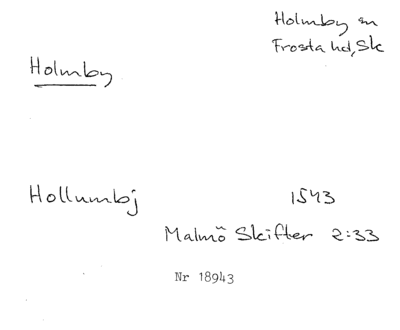 Holmby sn
Frosta hd, Sk
Holmby
Hollumbj 1543
Malmö Skifter 2:33
Nr 18943